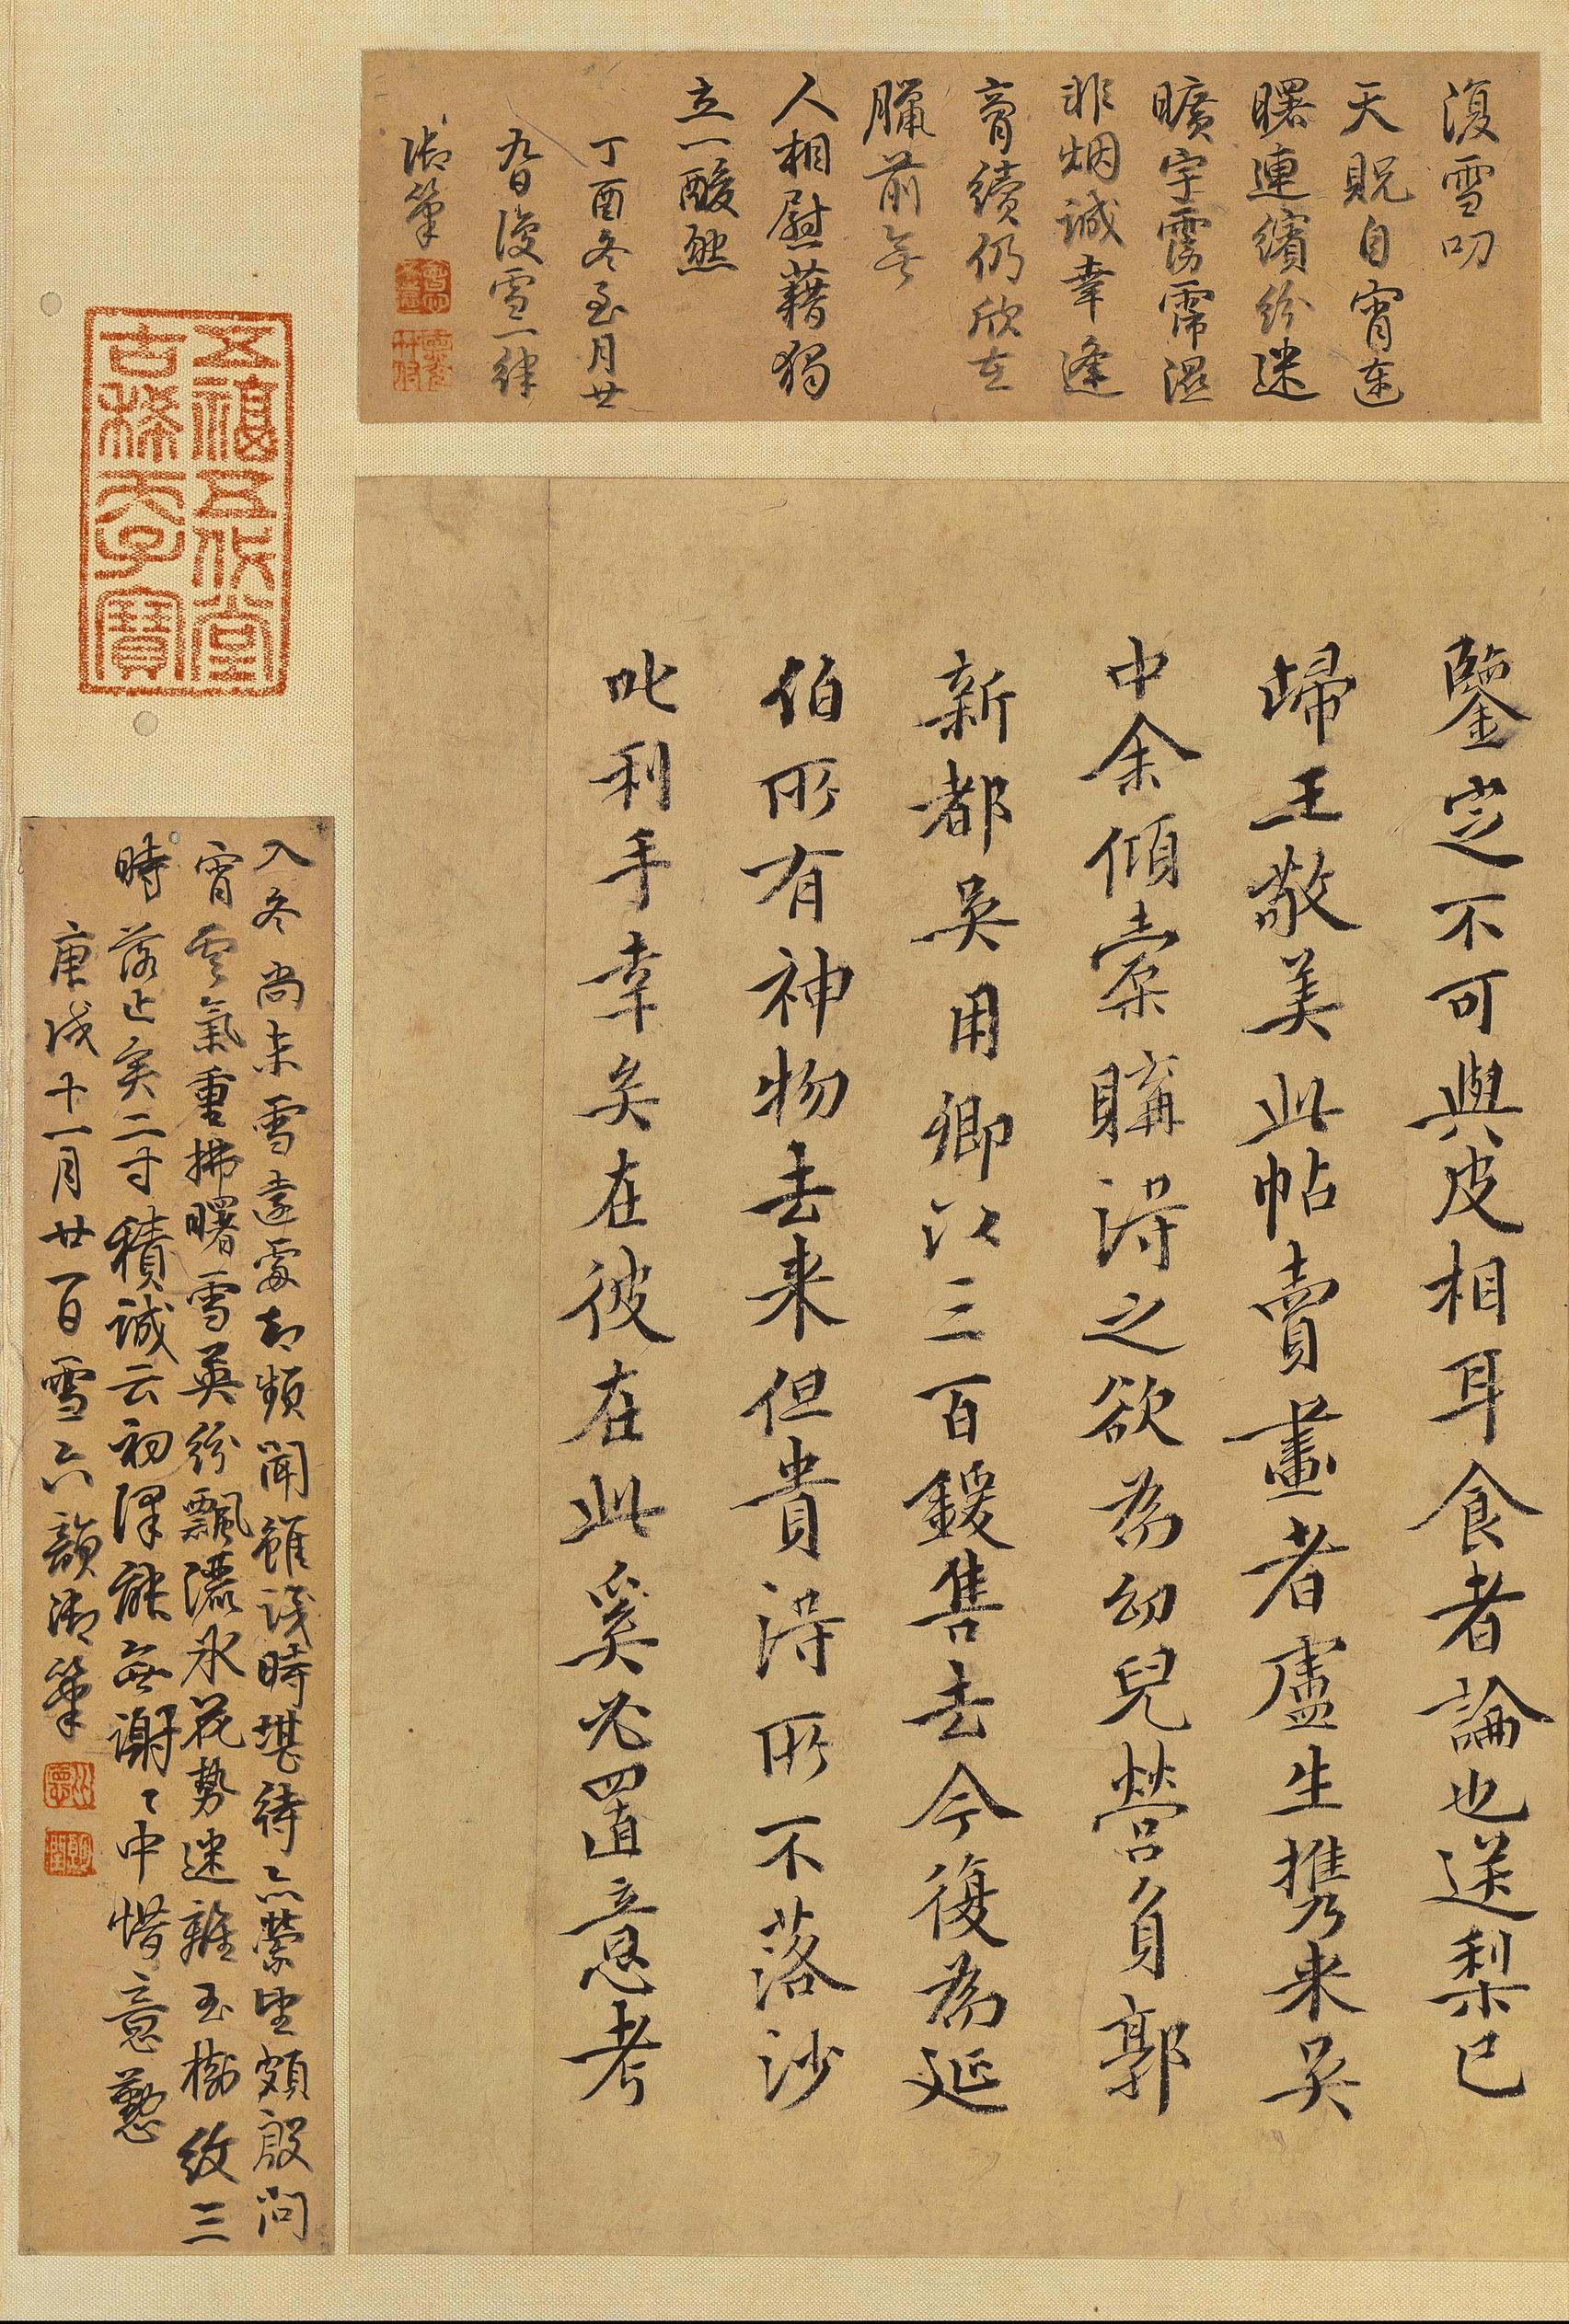 復雪叨
天貺自宵達
曙連繽紛迷
曠宇霶霈濕
非烟誠幸逢
膏續仍欣在
臘前無
人相慰藉獨
立一酸然
丁酉冬至月廿
九日復雪一律
御筆
鑒定不可與皮相耳食者論也送梨已
歸王敬美此帖賣畫者盧生攜來吳
中余傾橐購得之欲為幼兒營負郭
新都吳用卿以三百鍰售去今復為延
伯所有神物去來但貴得所不落沙
叱利手幸矣在彼在此奚必置意考
五福五代堂
古稀天子寶
入冬尚未雪遠處却頻聞雖識時堪待亦縈望頗殷問
宵雲氣重拂曙雪英紛飄灑冰花勢迷離玉樹紋三
時落止亥二寸積誠云初澤能無謝〻中惜意懃
庚戌十一月廿一日雪六韻御筆